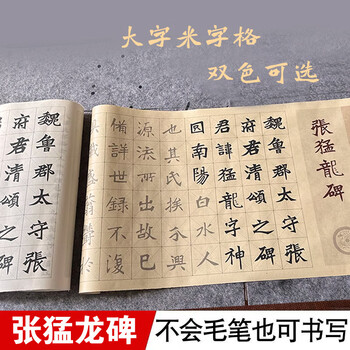 大字米字格
双色可选
張猛龍碑
魏魯郡太守張
府君清頌之碑
君諱猛龍字神
囙南陽白水人
也其氏族分興
源流所出故已
備詳世錄不復
魏魯郡太守張
府君清頌之碑
张猛龙碑
不会毛笔也可书写